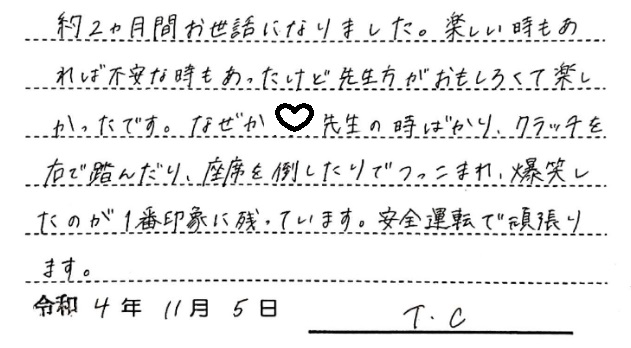 約2ヵ月間お世話になりました。楽しい時もあ
れば不安な時もあったけど先生方がおもしろくて楽し
かったです。なぜか♡先生の時ばかり、クラッチを
右で踏んだり、座席を倒したりでつっこまれ、爆笑し
たのが1番印象に残っています。安全運転で頑張り
ます。
令和4年11月5日 T.C